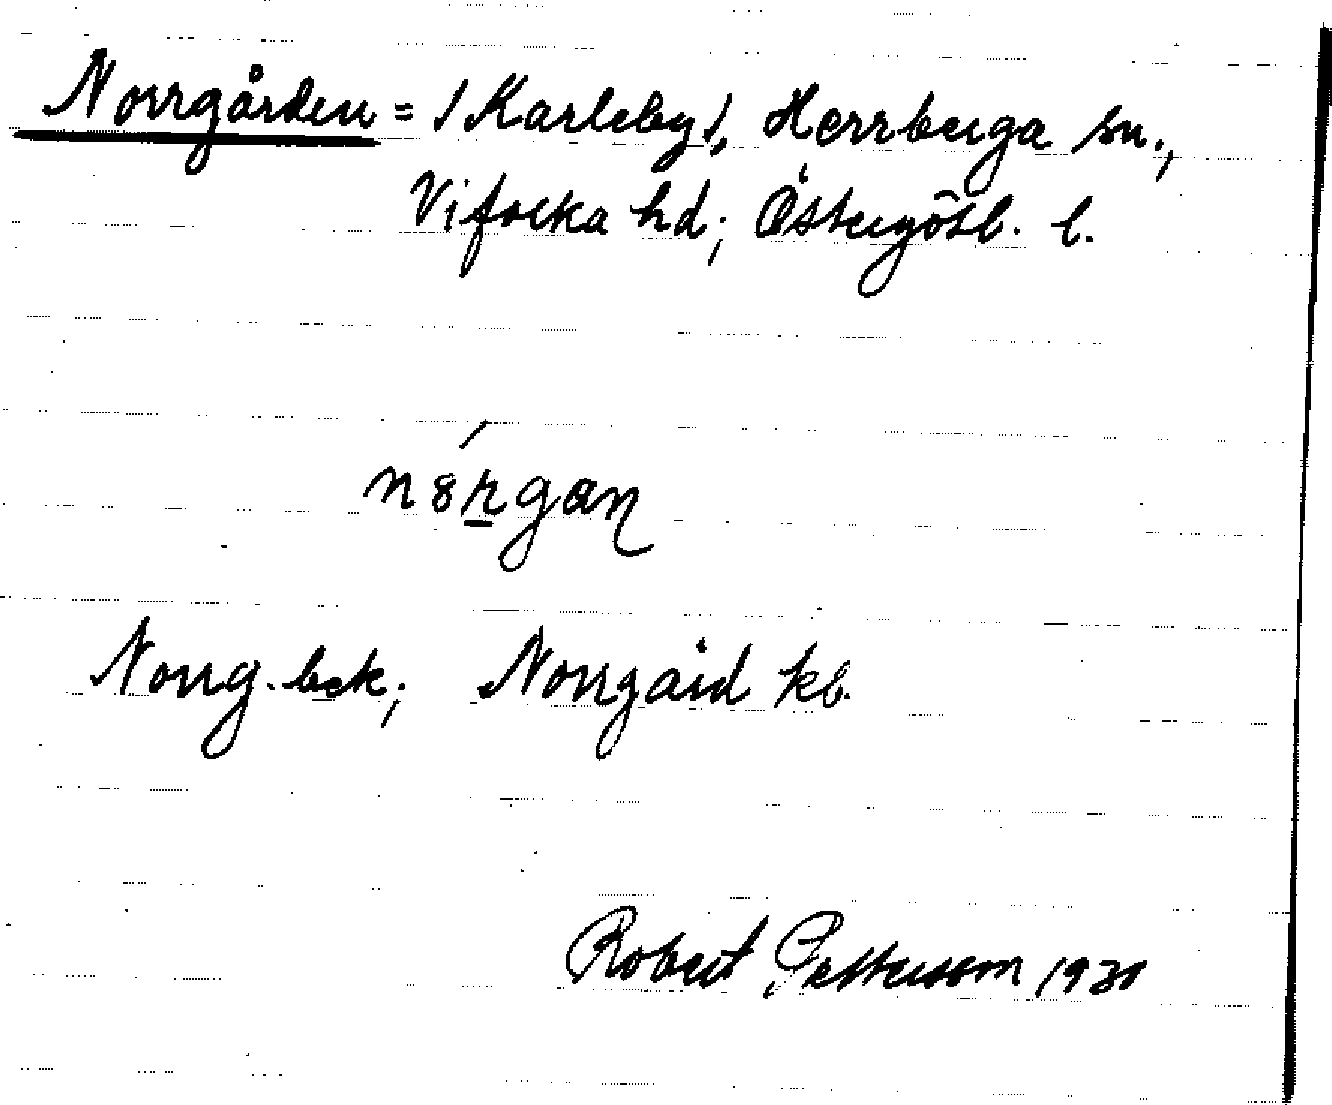 Norrgården = /Karleby/, Herrberga sn.,
Vifolka hd; Östergötl. l.
Norrg. bek; Norrgård kb.
Robert Pettersson 1930